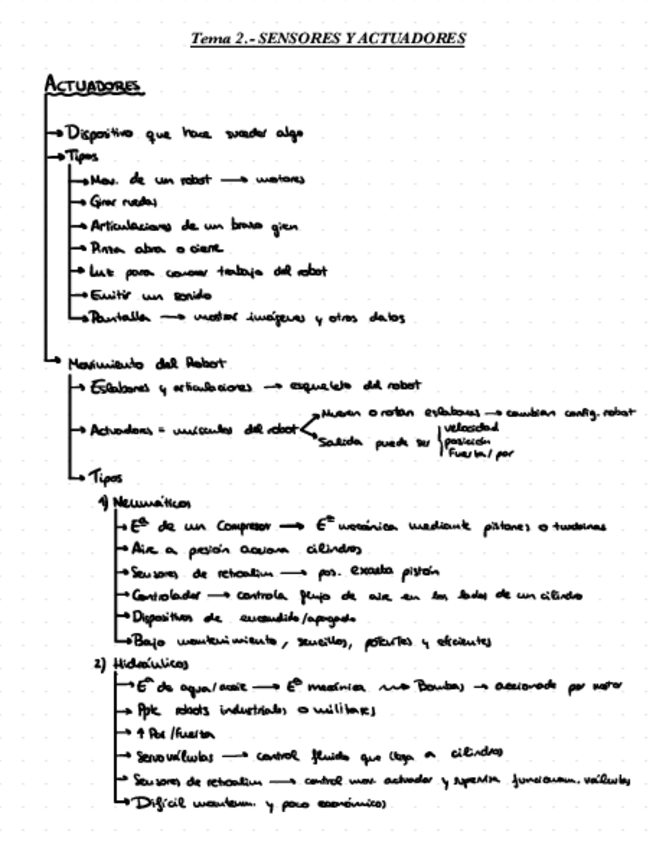 Tema 2.- SENSORES Y ACTUADORES
ACTUADORES
→ Dispositivo que hace suceder algo
→ Tipos
→ Mov. de un robot → motores
→ Girar ruedas
→ Articulaciones de un brazo giren
→ Pinza abra o cierre
→ Luz para conocer trabajo del robot
→ Emitir un sonido
→ Pantalla → mostrar imágenes y otros datos
→ Movimiento del Robot
→ Eslabones y articulaciones → esqueleto del robot
→ Mueven o rotan eslabones → cambian config. robot
→ Actuadores = músculos del robot
Salida puede ser
velocidad
posición
Fuerza/par
→ Tipos
1) Neumáticos
→ Eª de un Compresor → Eª mecánica mediante pistones o turbinas
→ Aire a presión acciona cilindros
→ Sensores de retroalim → pos. exacta pistón
→ Controlador → controla flujo de aire en los lados de un cilindro
→ Dispositivos de encendido/apagado
→ Bajo mantenimiento, sencillos, potentes y eficientes
2) Hidráulicos
→ Eª de agua/aceite → Eª mecánica → Bombas → accionado por motor
→ Ppte robots industriales o militares
→ ↑ Par/fuerza
→ Servoválvulas → control fluido que llega a cilindros
→ Sensores de retroalim → control mov. actuador y supervisa funcionam. válvulas
→ Difícil mantenim. y poco económicos